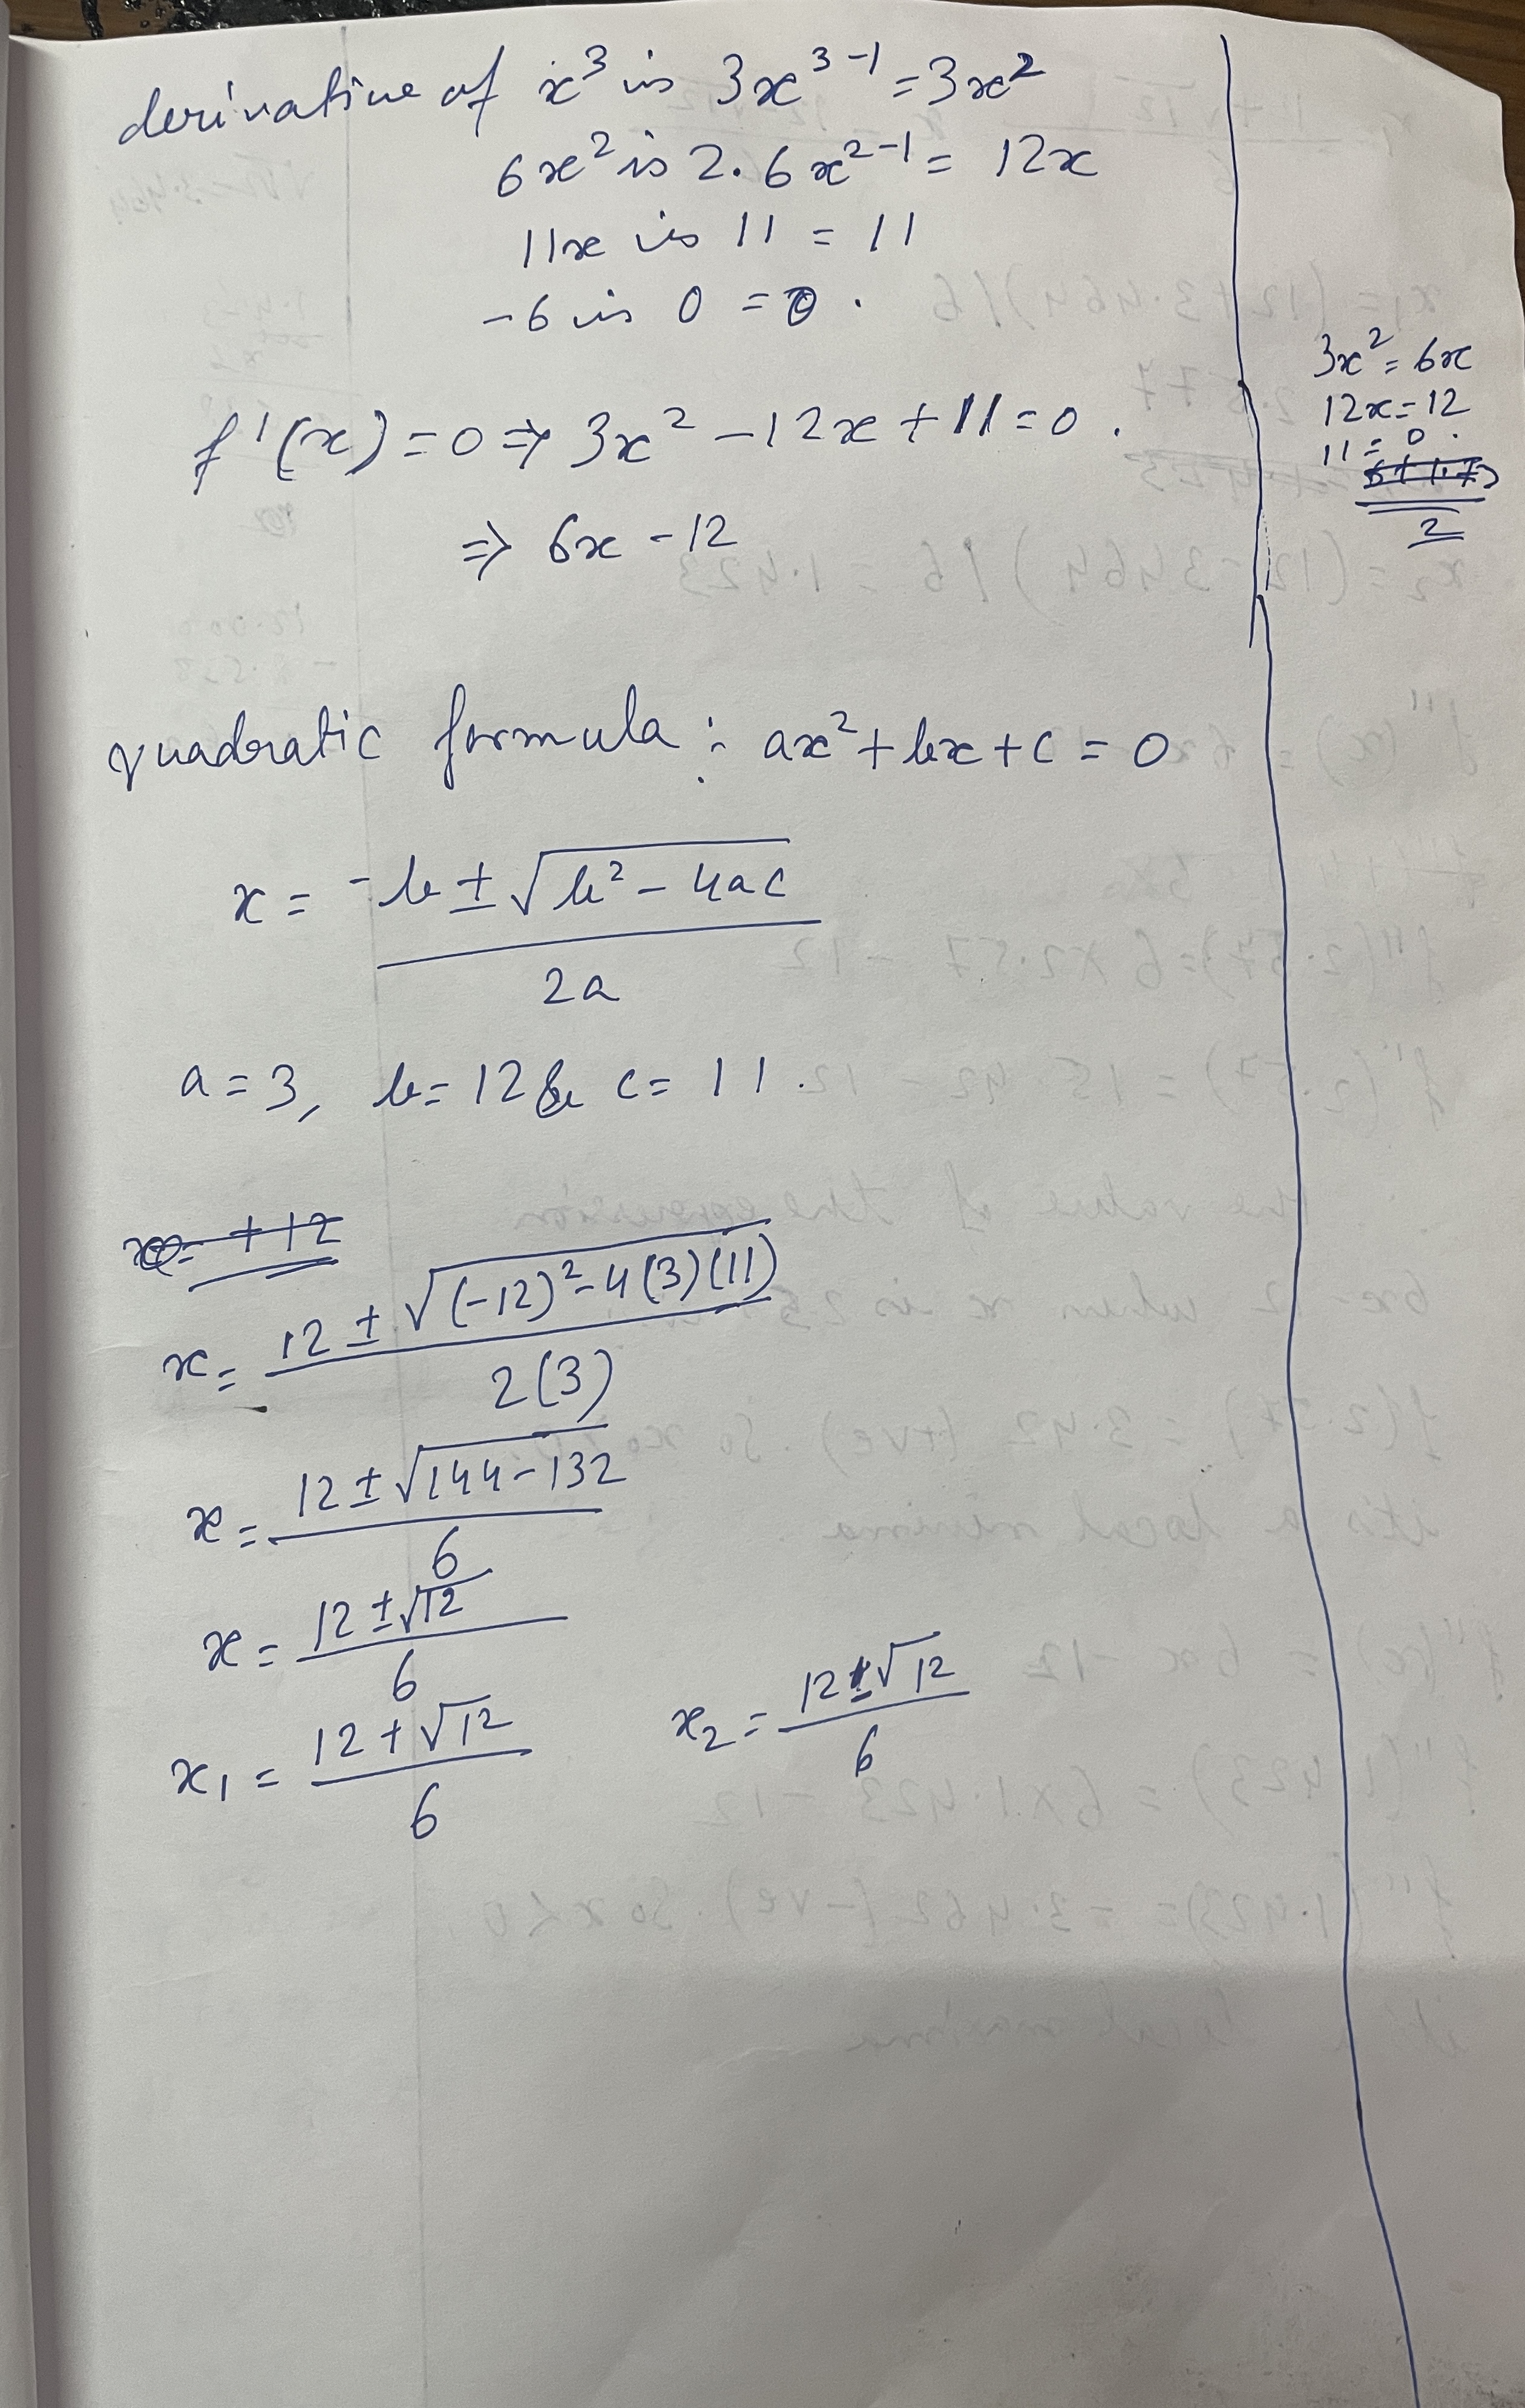 derivative of x³ is 3x³⁻¹ = 3x²
6x² is 2.6x²⁻¹ = 12x
11x is 11 = 11
-6 is 0 = 0.
f'(x) = 0 ⇒ 3x² - 12x + 11 = 0.
⇒ 6x - 12
3x² = 6x
12x = 12
11 = 0.
2
quadratic formula : ax² + bx + c = 0
x = -b ± √(b² - 4ac) / 2a
a = 3, b = 12 & c = 11.
x = +12
x = 12 ± √((-12)² - 4(3)(11)) / 2(3)
x = 12 ± √(144 - 132) / 6
x = 12 ± √12 / 6
x₁ = 12 + √12 / 6
x₂ = 12 ± √12 / 6